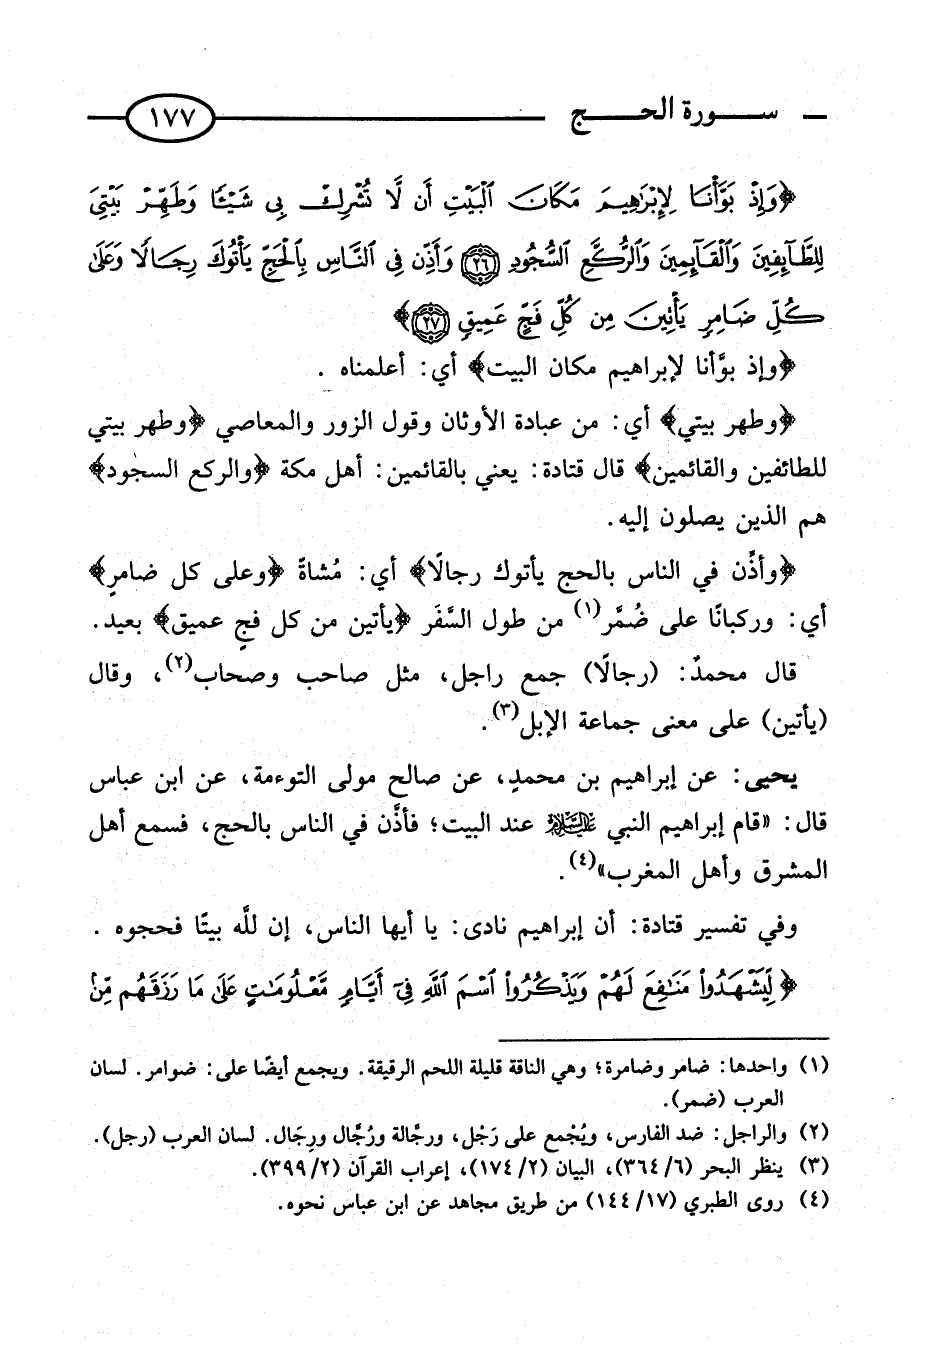 سورة الحج ١٧٧
﴿وَإِذْ بَوَّأْنَا لِإِبْرَٰهِيمَ مَكَانَ ٱلْبَيْتِ أَن لَّا تُشْرِكْ بِى شَيْـًٔا وَطَهِّرْ بَيْتِىَ
لِلطَّآئِفِينَ وَٱلْقَآئِمِينَ وَٱلرُّكَّعِ ٱلسُّجُودِ ٢٦ وَأَذِّن فِى ٱلنَّاسِ بِٱلْحَجِّ يَأْتُوكَ رِجَالًا وَعَلَىٰ
كُلِّ ضَامِرٍ يَأْتِينَ مِن كُلِّ فَجٍّ عَمِيقٍ ٢٧﴾
﴿وإذ بوَّأنا لإبراهيم مكان البيت﴾ أي: أعلمناه .
﴿وطهر بيتي﴾ أي: من عبادة الأوثان وقول الزور والمعاصي ﴿وطهر بيتي
للطائفين والقائمين﴾ قال قتادة: يعني بالقائمين: أهل مكة ﴿والركع السجود﴾
هم الذين يصلون إليه.
﴿وأذِّن في الناس بالحج يأتوك رجالًا﴾ أي: مُشاةً ﴿وعلى كل ضامرٍ﴾
أي: وركبانًا على ضُمَّر(١) من طول السَّفَر ﴿يأتين من كل فجٍ عميق﴾ بعيد.
قال محمدٌ: (رجالًا) جمع راجل، مثل صاحب وصحاب(٢)، وقال
(يأتين) على معنى جماعة الإبل(٣).
يحيى: عن إبراهيم بن محمدٍ، عن صالح مولى التوءمة، عن ابن عباس
قال: «قام إبراهيم النبي عليه السلام عند البيت؛ فأذَّن في الناس بالحج، فسمع أهل
المشرق وأهل المغرب»(٤).
وفي تفسير قتادة: أن إبراهيم نادى: يا أيها الناس، إن للَّه بيتًا فحجوه .
﴿لِّيَشْهَدُوا۟ مَنَٰفِعَ لَهُمْ وَيَذْكُرُوا۟ ٱسْمَ ٱللَّهِ فِىٓ أَيَّامٍ مَّعْلُومَٰتٍ عَلَىٰ مَا رَزَقَهُم مِّنۢ
(١) واحدها: ضامر وضامرة؛ وهي الناقة قليلة اللحم الرقيقة. ويجمع أيضًا على: ضوامر. لسان
العرب (ضمر).
(٢) والراجل: ضد الفارس، ويُجْمع على رَجْل، ورجَّالة ورُجَّال ورِجَال. لسان العرب (رجل).
(٣) ينظر البحر (٦/ ٣٦٤)، البيان (٢/ ١٧٤)، إعراب القرآن (٢/ ٣٩٩).
(٤) روى الطبري (١٧/ ١٤٤) من طريق مجاهد عن ابن عباس نحوه.